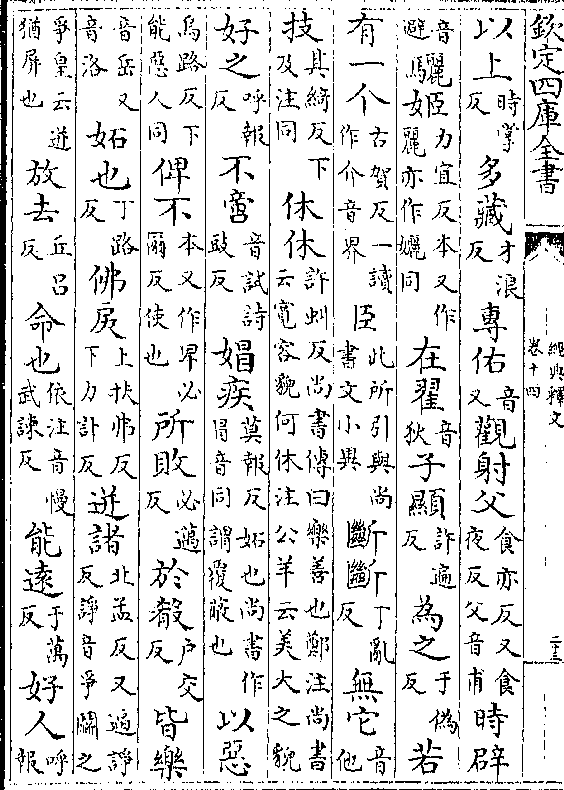 欽定四庫全書
經典釋文
卷十四
二十三
以上時掌反多藏才浪反專佑音又觀射父食亦反又食夜反父音甫時辟
音避驪姬力宜反本又作麗亦作孋同在翟音狄子顯許遍反為之于偽反若
有一个古賀反一讀作介音界臣此所引與尚書文小異斷斷丁亂反無它音他
技其綺反下及注同休休許虯反尚書傳曰樂善也鄭注尚書云寬容貌何休注公羊云美大之貌
好之呼報反不啻音試詩豉反媢疾莫報反妬也尚書作冒音同謂覆蔽也以惡
烏路反下能惡人同俾不本又作卑必爾反使也所敗必邁反於殽戶交反皆樂
音岳又音洛妬也丁路反佛戾上扶弗反下力計反迸諸北孟反又逼諍反諍音爭鬬之
爭皇云迸猶屏也放去丘呂反命也依注音慢武諫反能遠于萬反好人呼報